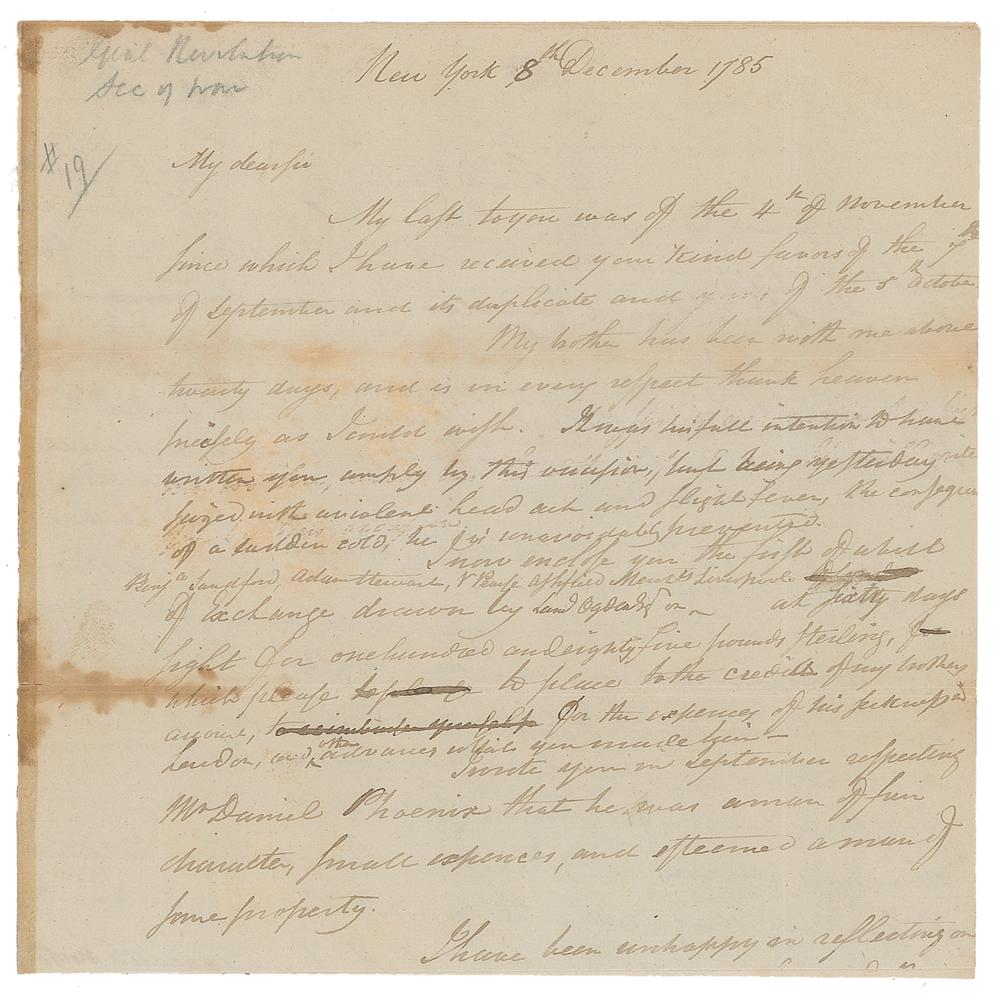 Genl Revolution
Sec of War
# 19/
New York 8th December 1785
My dear sir
My last to you was of the 4th of November
since which I have received your kind favors of the 7th
of September and its duplicate and yours of the 5th October
My brother has been with me above
twenty days, and is in every respect thank heaven
precisely as I could wish. It was his full intention to have
written you, amply by this occasion, but being yesterday
seized with a violent head ach and slight fever, the consequence
of a sudden cold, he is unavoidably prevented.
I now enclose you the first of a bill
Benja Sandford, Adam Stewart, &
Merts Liverpool
of Exchange drawn by
on
at sixty days
sight for one hundred and eighty five pounds sterling,
which please to place to the credit of my brothers
account, to reimburse yourself for the expences of his sickness in
London, and other advances which you made him—
I wrote you in September respecting
Mr Daniel Phoenix that he was a man of fair
character, small expences, and esteemed a man of
some property.
I have been unhappy in reflecting on